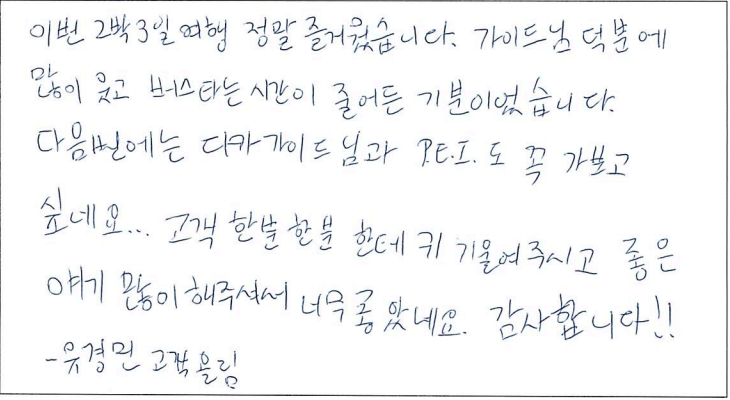 이번 2박3일여행 정말 즐거웠습니다. 가이드님 덕분에
많이 웃고 버스타는시간이 줄어든 기분이었습니다.
다음번에는 디카가이드님과 P.E.I. 도 꼭 가보고
싶네요... 고객 한분한분 한테 귀 기울여주시고 좋은
얘기 많이해주셔서 너무좋았네요. 감사합니다!!
-유경민 고객올림